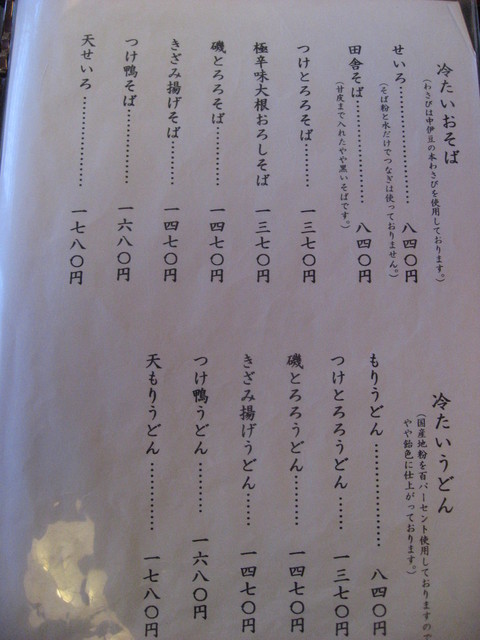 冷たいおそば
(わさびは中伊豆の本わさびを使用しております。)
せいろ…………………八四〇円
(そば粉と水だけでつなぎは使っておりません。)
田舎そば……………八四〇円
(甘皮まで入れたやや黒いそばです。)
つけとろろそば…………一三七〇円
極辛味大根おろしそば 一三七〇円
磯とろろそば…………一四七〇円
きざみ揚げそば…………一四七〇円
つけ鴨そば……………一六八〇円
天せいろ………………一七八〇円
冷たいうどん
(国産地粉を百パーセント使用しておりますの
やや飴色に仕上がっております。)
もりうどん……………八四〇円
つけとろろうどん……一三七〇円
磯とろろうどん………一四七〇円
きざみ揚げうどん……一四七〇円
つけ鴨うどん………一六八〇円
天もりうどん…………一七八〇円